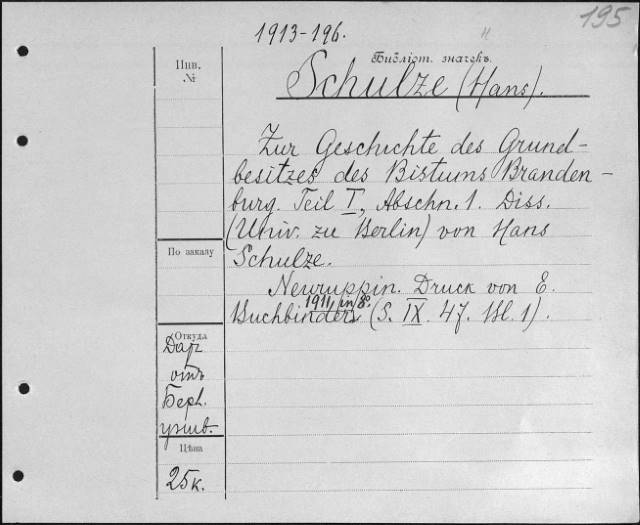 195
1913-196.
Библіот. значекъ.
Инв.
№
Schulze (Hans).
Zur Geschichte des Grund-
besitzes des Bistums Branden-
burg. Teil I, Abschn. 1. Diss.
(Univ. zu Berlin) von Hans
Schulze.
По заказу
Neuruppin. Druck von E.
1911, in 8°.
Buchbinder. (S. IX. 47. Bl. 1).
Откуда
Дар
отъ
Берл.
унив.
Цѣна
25 к.